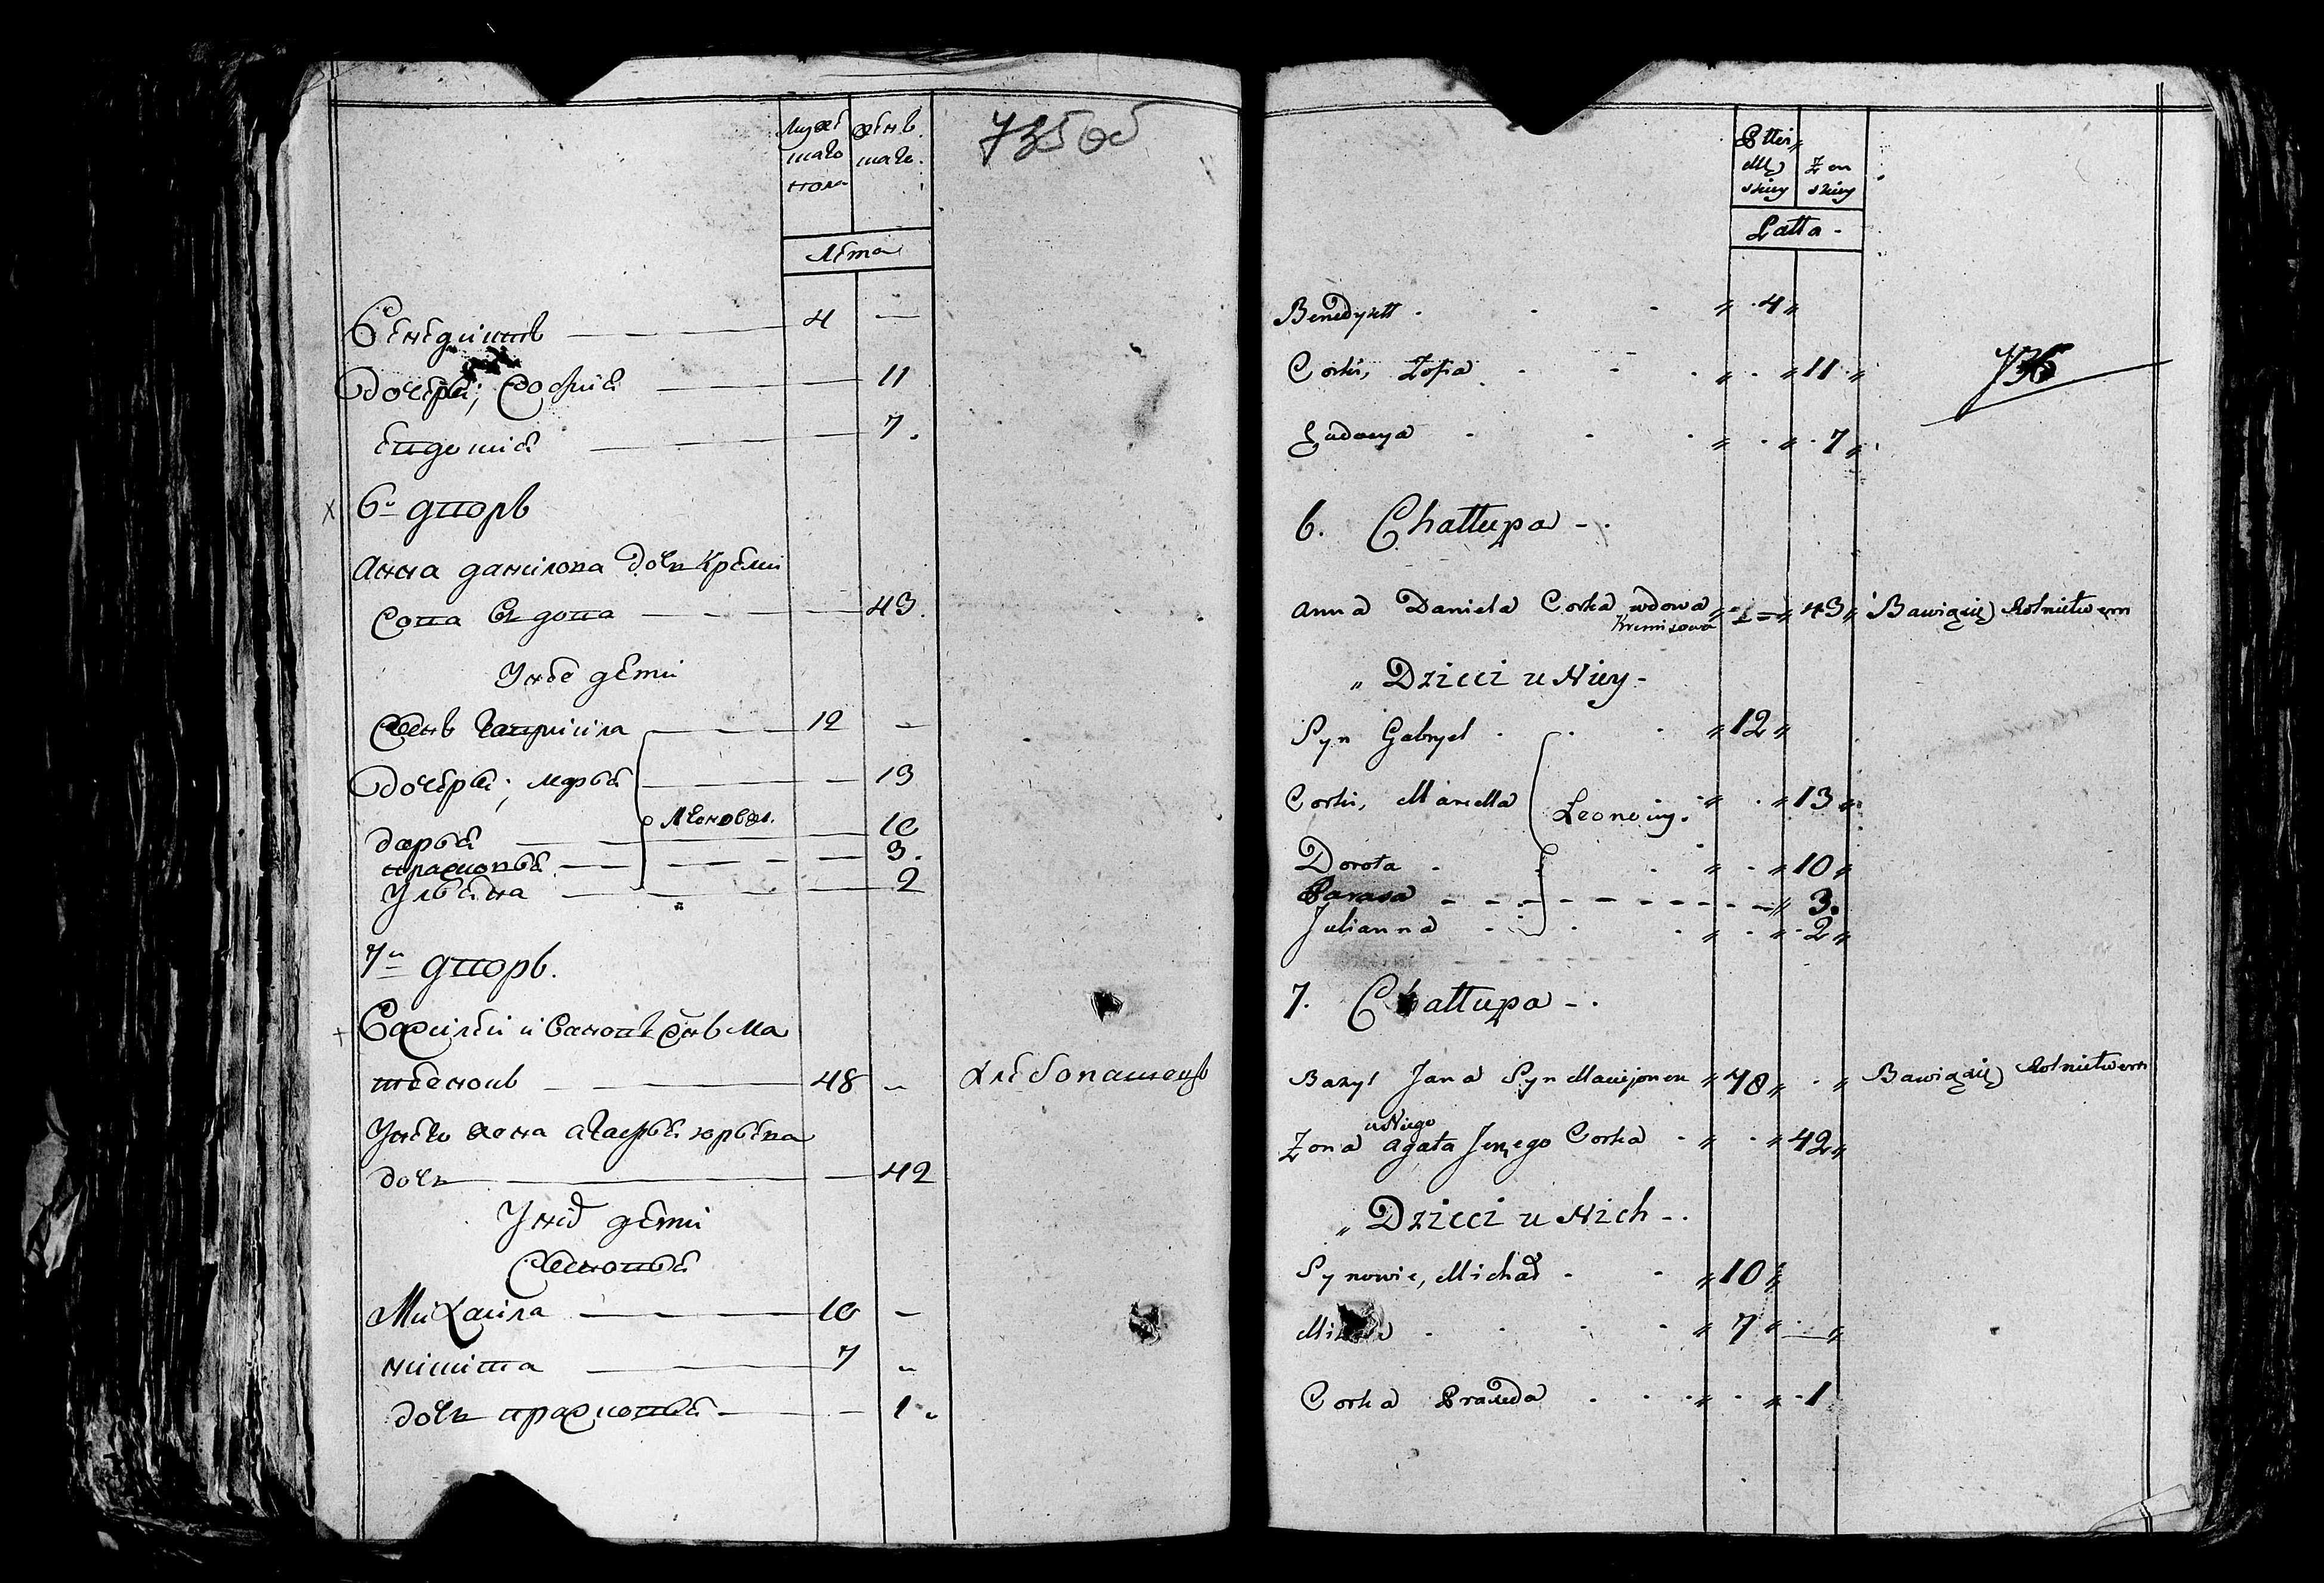 Мужескаго пола
женскаго
735 об
Лета
Бенедиктъ 4 —
Дочери; Софиа — 11
Евдокиа — 7.
6й дворъ
Анна данилова дочь Креми
сова вдова — 43.
У нее дети
Сынъ Гавриила 12 —
Дочери; марья — 13
Леоновы.
дарья — 10
прасковья — 3.
Ульяна — 2
7й дворъ.
Василеи ивановъ сынъ Ма
твеюнъ 48 — хлебопашецъ
У него жена агафья юрьева
дочь — 42
У них дети
Сыновья
Михаила 10 —
никита 7 —
дочь прасковья — 1.
Płci
Mę Żen
skiey skiey
Latta -
Benedyktt 4
Corki, Zofia 11
736
Eudocya 7
6. Chałłupa -.
Anna Daniela Corka wdowa 43 Bawiąsię Rolnictwem
Kremisowa
Dzieci u Niey -
Syn Gabryel 12
Corki, Maryella 13
Leonowy.
Dorota 10
Parasa 3.
Julianna 2
7. Chałłupa -.
Bazyl Jana Syn Maciejonen 48 Bawiąsię Rolnictwem
u Niego
Zona Agata Jerzego Corka 42
Dzieci u Nich -.
Synowie, Michał 10
7
Corka Praxeda 1